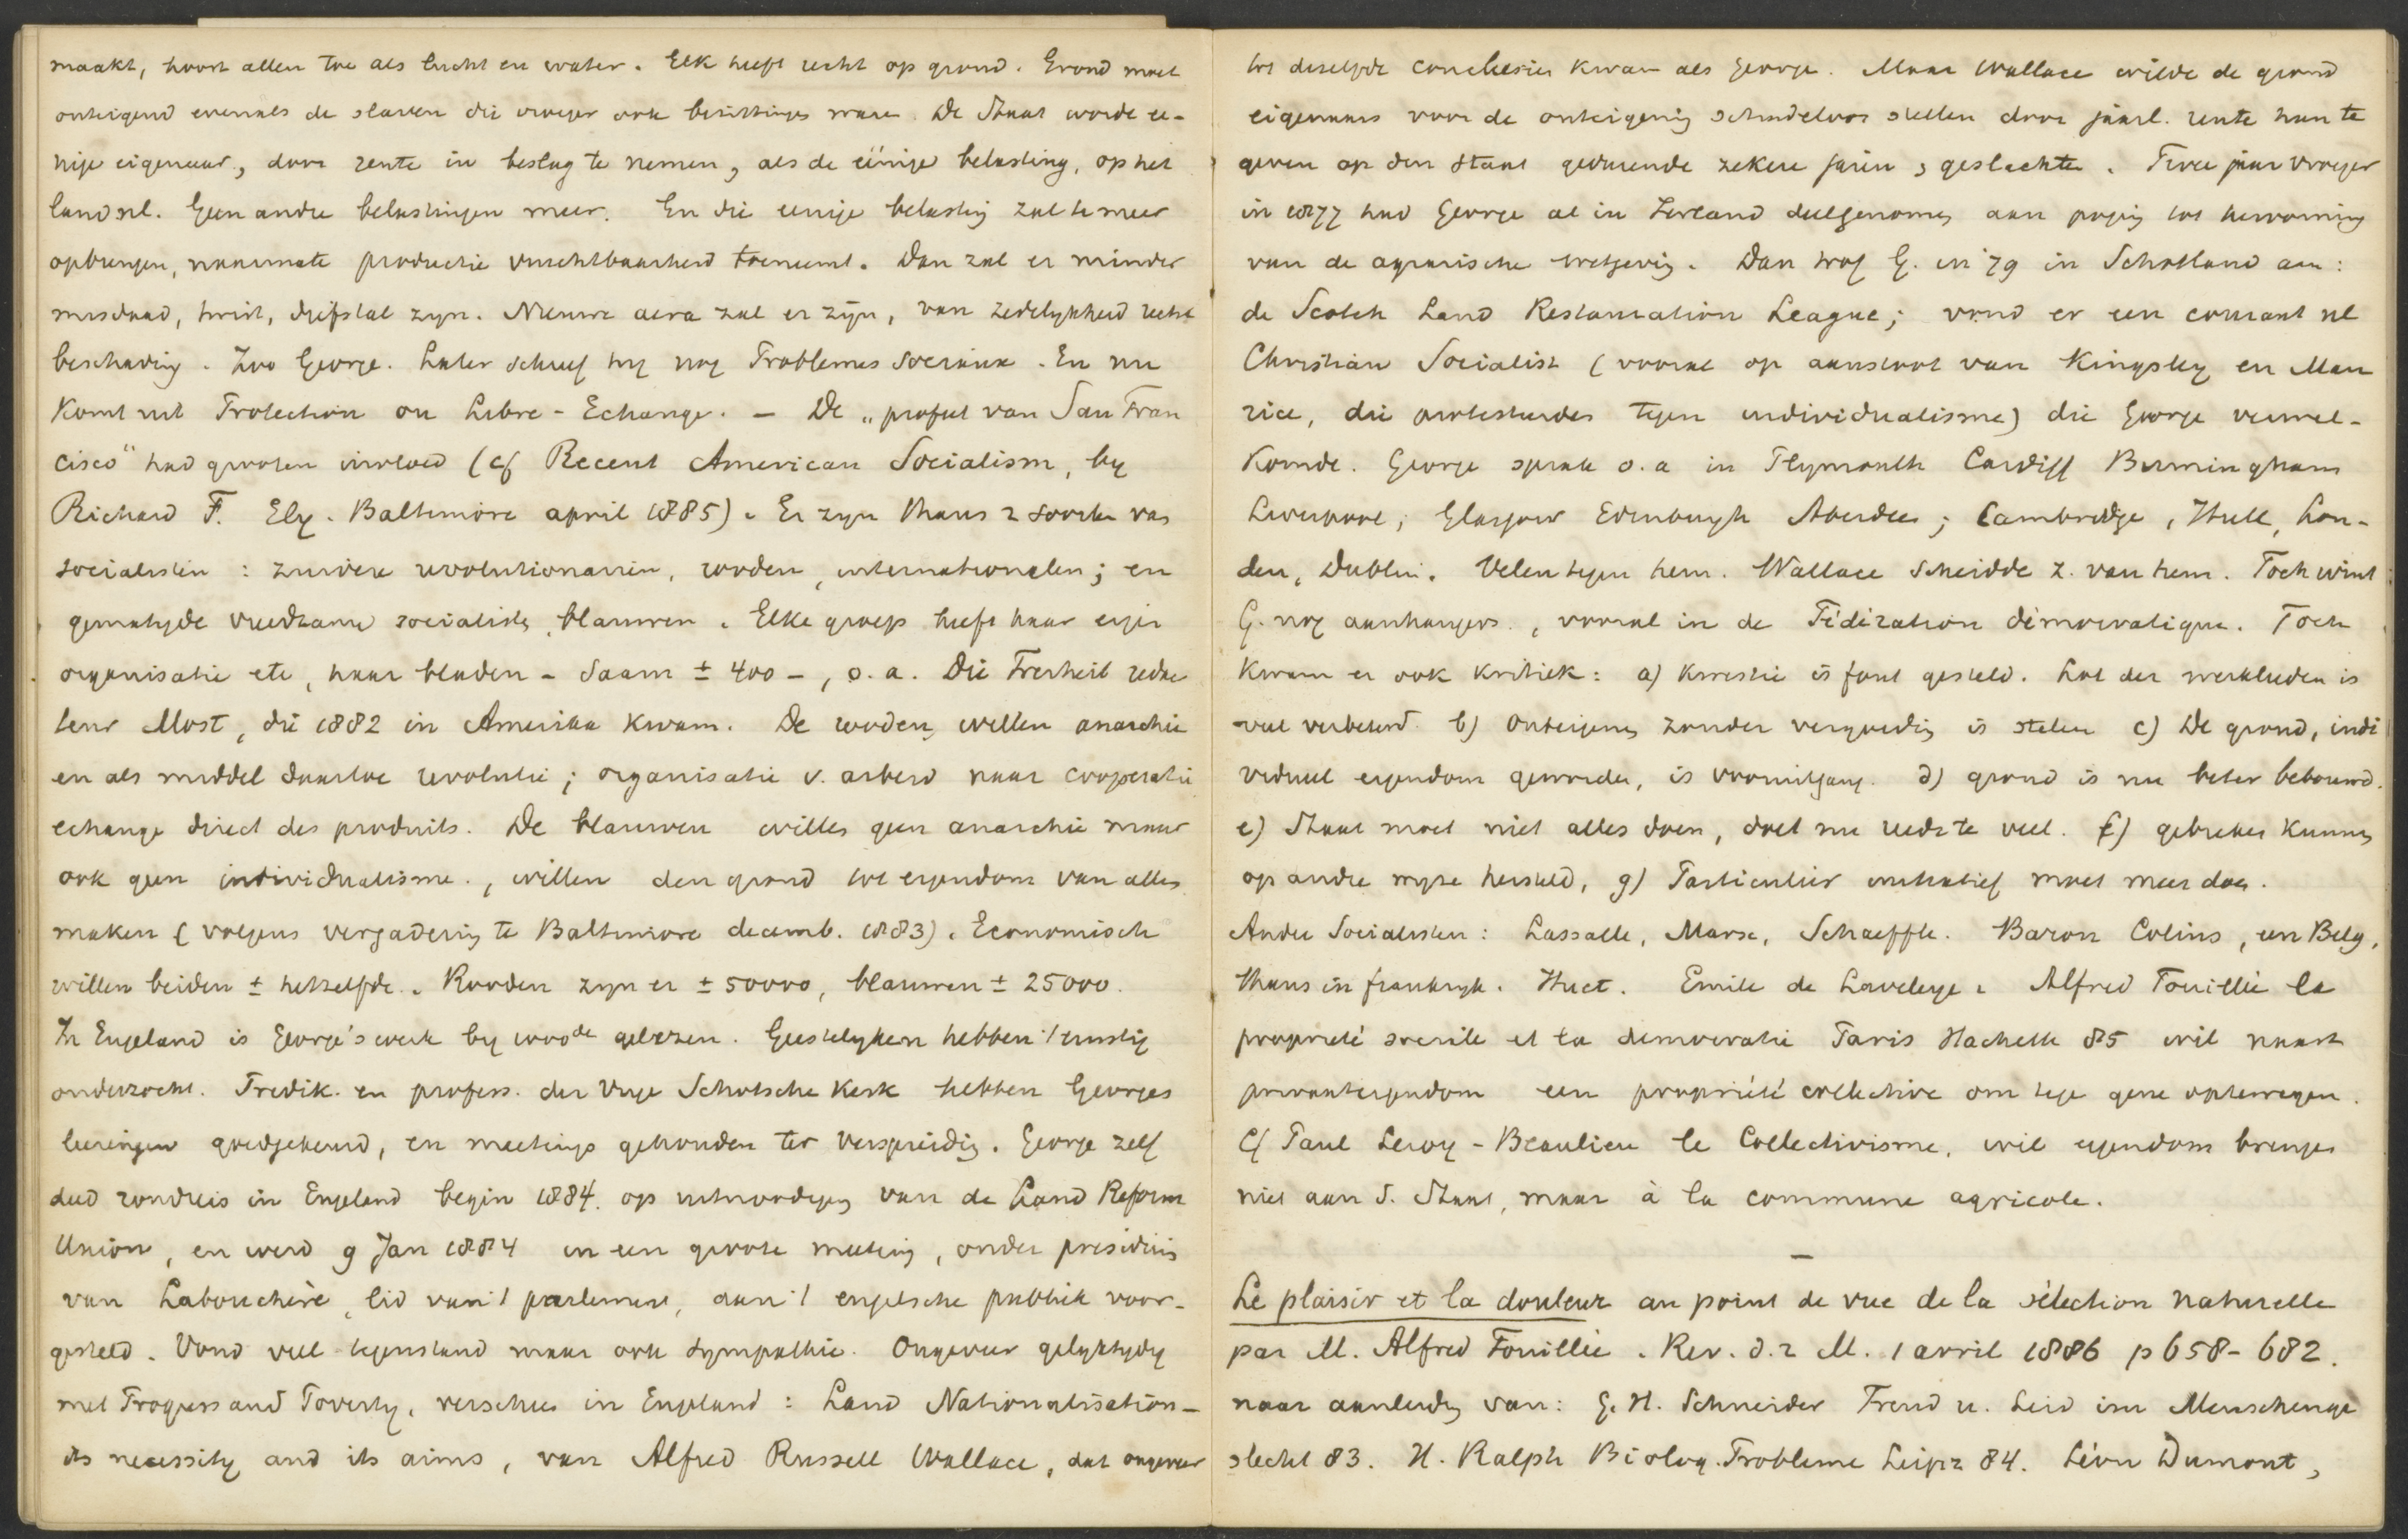 maakt, hoort allen toe als lucht en water. Elk heeft recht op grond. Grond moet
onteigend evenals de slaven die vroeger ook bezittingen waren. De Staat worde ee-
nige eigenaar, door rente in beslag te nemen, als de eénige belasting, op het
land nl. Geen andre belastingen meer. En die eenige belasting zal te meer
opbrengen, naarmate productie vruchtbaarheid toeneemt. Dan zal er minder
misdaad, twist, diefstal zyn. Nieuwe aera zal er zyn, van zedelykheid recht
beschaving. Zoo George. Later schreef hy nog Problemes Sociaux. En nu
komt uit Protection ou Libre-Echange. — De „profeet van San Fran
cisco" had grooten invloed (cf Recent American Socialism, by
Richard F. Ely. Baltimore april 1885). Er zyn thans 2 soorten van
socialisten: zuivere revolutionairen, rooden, internationalen; en
gematigde vreedzame socialisten, blauwen. Elke groep heeft haar eigen
organisatie etc, haar bladen – saam ± 400 –, o.a. Die Freiheit redac
teur Most, die 1882 in Amerika kwam. De rooden willen anarchie
en als middel daartoe revolutie; organisatie v. arbeid naar cooperatie
echange direct des produits. De blauwen willen geen anarchie maar
ook geen individualisme., willen den grond tot eigendom van allen
maken (volgens vergadering te Baltimore decemb. 1883). Economisch
willen beiden ± hetzelfde. Rooden zyn er ± 50000, blauwen ± 25000.
In Engeland is George's werk by 1000de gelezen. Geestelyken hebben 't ernstig
onderzocht. Predik. en profess. der Vrye Schotsche Kerk hebben Georges
leeringen goedgekeurd, en meetings gehouden ter verspreiding. George zelf
deed rondreis in Engeland begin 1884. op uitnoodiging van de Land Reform
Union, en werd 9 Jan 1884 in een groote meeting, onder presidium
van Labouchère, lid van 't parlement, aan 't engelsche publiek voor-
gesteld. Vond veel tegenstand maar ook sympathie. Ongeveer gelyktydig
met Progress and Poverty, verscheen in Engeland: Land Nationalisation –
its necessity and its aims, van Alfred Russell Wallace, dat ongeveer
tot dezelfde conclusies kwam als George. Maar Wallace wilde de grond
eigenaars voor de onteigening schadeloos stellen door jaarl. rente hun te
geven op den staat gedurende zekere jaren, geslachten. Twee jaar vroeger
in 1877 had George al in Ierland deelgenomen aan poging tot hervorming
van de agrarische wetgeving. Dan trof G. in '79 in Schotland aan:
de Scotch Land Restauration League; vond er een courant nl
Christian Socialist (vooral op aanstoot van Kingsley en Mau
rice, die protesteerden tegen individualisme) die George verwel-
komde. George sprak o.a in Plymouth Cardiff Birmingham
Liverpool, Glasgow Edinburgh Aberdeen; Cambridge, Hull, Lon-
den, Dublin. Velen tegen hem. Wallace scheidde z. van hem. Toch wint
G. nog aanhangers., vooral in de Fédération démocratique. Toch
kwam er ook kritiek: a) kwestie is fout gesteld. Lot der werklieden is
veel verbeterd b) onteigenen zonder vergoeding is stelen c) De grond, indi
vidueel eigendom geworden, is vooruitgang. d) grond is nu beter bebouwd.
e) Staat moet niet alles doen, doet nu reeds te veel. f) gebreken kunnen
op andre wyze hersteld, g) Particulier initiatief moet meer doen.
Andre Socialisten: Lassalle, Marx, Schaeffle. Baron Colins, een Belg,
thans in frankryk. Huet. Emile de Laveleye. Alfred Fouillée la
propriété sociale et la démocratie Paris Hachette 85 wil naast
privaateigendom een propriété collective om tegen gene optewegen.
Cf Paul Leroy-Beaulieu le Collectivisme, wil eigendom brengen
niet aan d. Staat, maar à la commune agricole.
—
Le plaisir et la douleur au point de vue de la sélection naturelle
par M. Alfred Fouillée. Rev. d. 2 M. 1 avril 1886 p 658-682.
naar aanleiding van: G. H. Schneider Freud u. Leid im Menschenge
slecht 83. H. Ralph Biolog. Probleme Leipz 84. Léon Dumont,